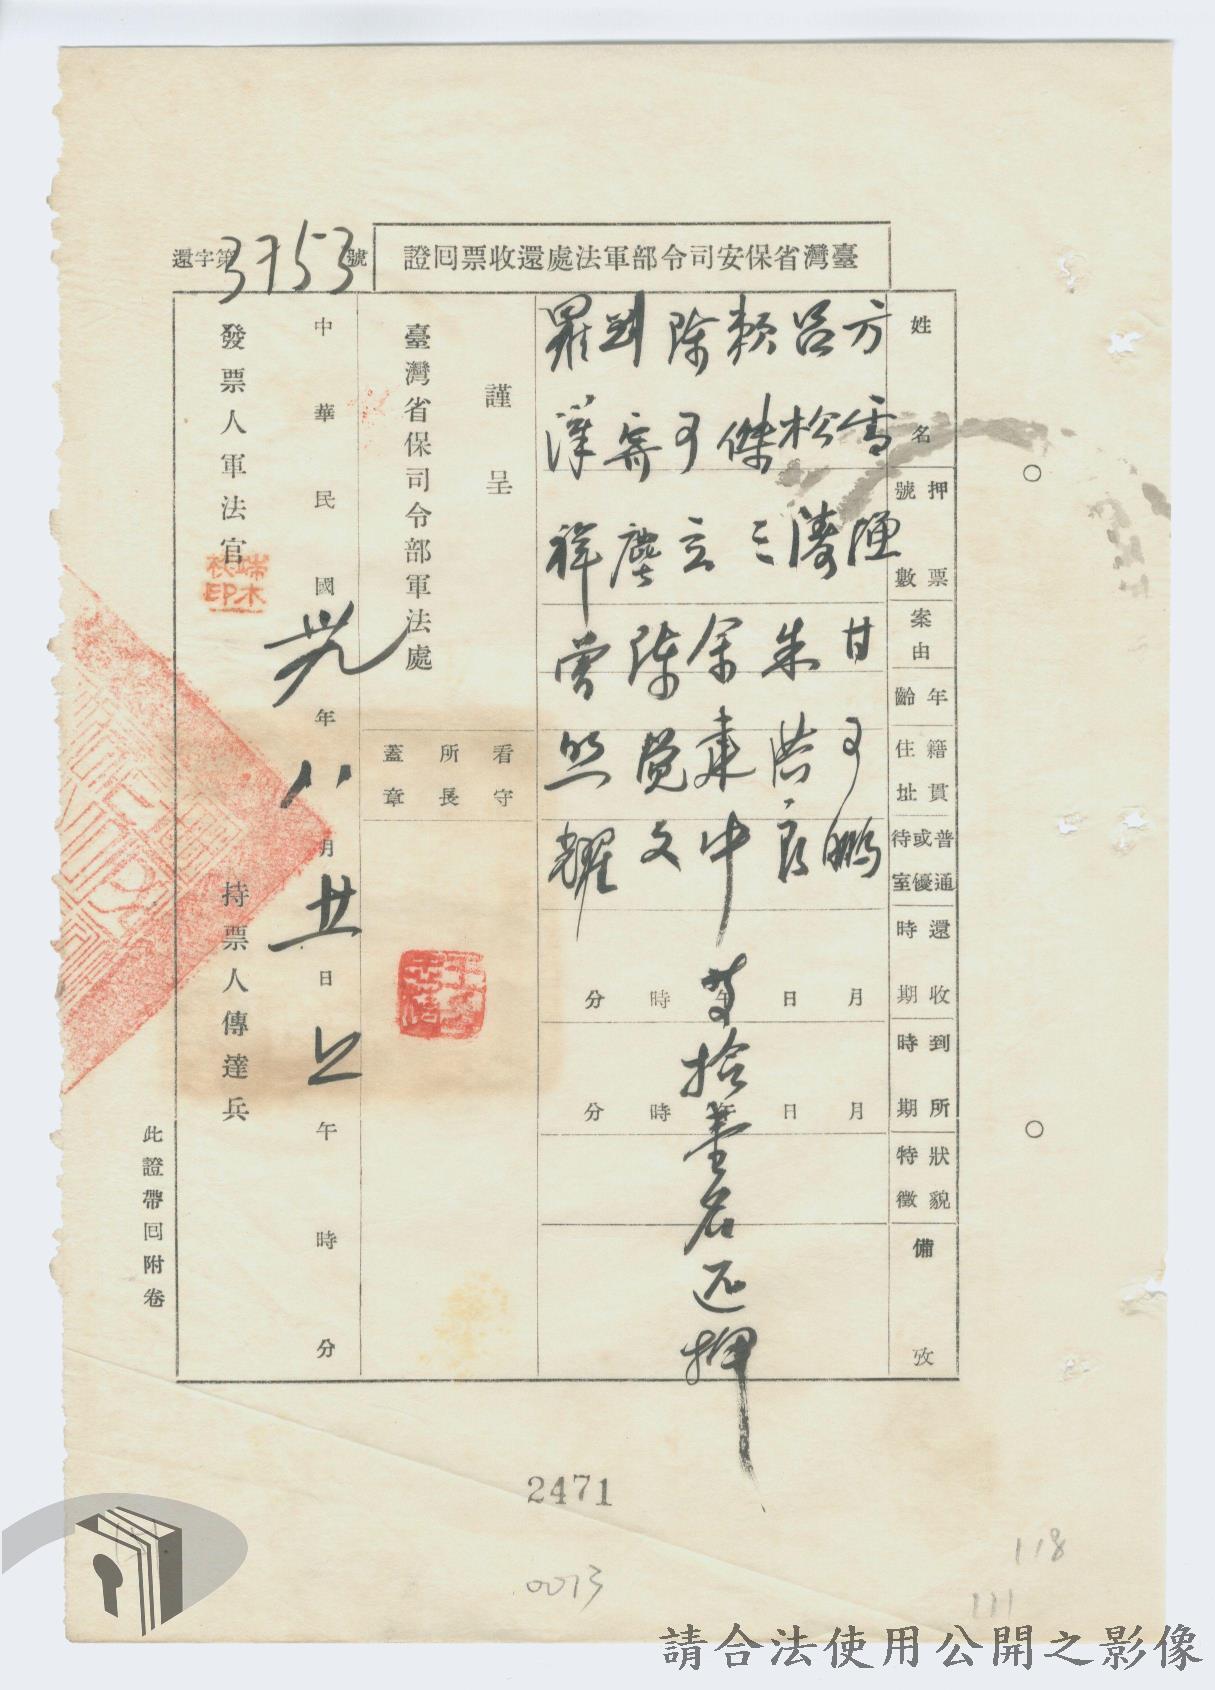 臺灣省保安司令部軍法處還收票回證
還字第3753號
姓名
押票號數
案由
年齡
籍貫住址
普通或優待室
還收時期
到所時期
狀貌特徵
備攷
方雪
甘
呂松濤
朱
良
賴傑三
余
中
陳
立
陳覺文
羅漢祥
曾照耀
等拾壹名還押
月 日 午 時 分
月 日 午 時 分
謹呈
臺灣省保司令部軍法處
看守所長蓋章
中華民國卅九年八月廿一日上午 時 分
發票人軍法官
端木
印
持票人傳達兵
此證帶回附卷
2471
0073
118
111
請合法使用公開之影像